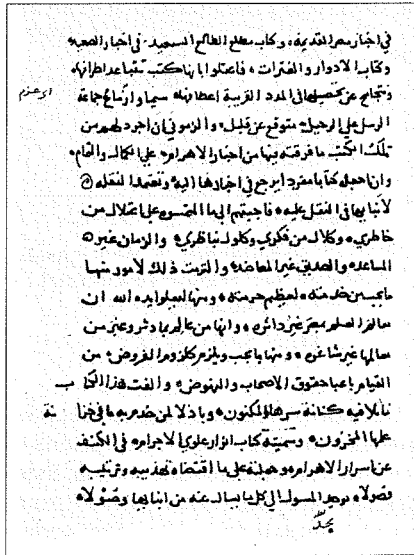 في اخبار مصر القديمة، وكتاب مطلع الطالع السعيد، في اخبار الصعيد
وكتاب الادوار والفترات، فاعتلوا بانها كتب تتباعد اطرافها،
عن تحصيلها في المدد القريبة اعطافها، سيما وازماع جماعة
الرسل على الرحيل، متوقع عن قليل، والزموني ان اجرد لهم من
تلك الكتب ما فرقته فيها من اخبار الاهرام، على الكمال والتمام،
وان اجعله كتابا مفردا يرجع في اخبارها اليه، ويعتمد لنقله
لانبائها في النقل عليه، فاجبتهم الى ما التمسوه على اعتلال من
خاطري، وكلال من فكري وكلول من ناظري، والزمان غير
المساعد، والصديق غير المعاضد، والتزمت ذلك لامور منها
ما يجب من خدمته، لعظيم حرمته، ومنها ليعلم ايده الله ان
معالم العلم بمصر غير داثرة، وانها من عالم
معالمها غير شاغرة، ومنها ما يجب ويلزم كلزوم الفروض، من
القيام باعباء حقوق الاصحاب والنهوض، والفت هذا الكتاب
ناثلا فيه كنانة سرها المكنون، وباذلا لمن خدم به ما في خزانة
علمها المخزون، وسميته كتاب انوار علوي الاجرام، في الكشف
عن اسرار الاهرام، وجعلته على ما اقتضاه تهذيبه وترتيبه
فصولا، توصل المسؤل الى كل ما يسال عنه من انبائها وصولا،